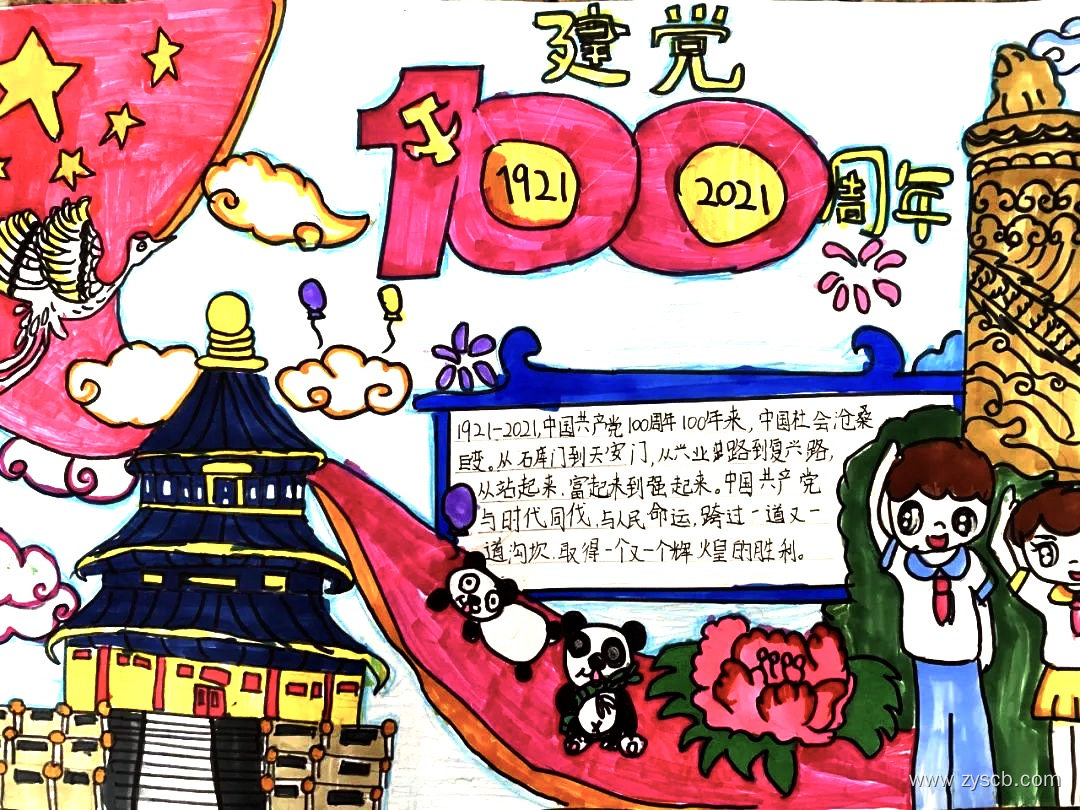 建党
100
1921
2021
周年
1921-2021,中国共产党100周年100年来,中国社会沧桑
巨变。从石库门到天安门,从兴业路到复兴路,
从站起来、富起来到强起来。中国共产党
与时代同伐,与人民命运,跨过一道又一
道沟坎,取得一个又一个辉煌的胜利。
www.zyscb.com